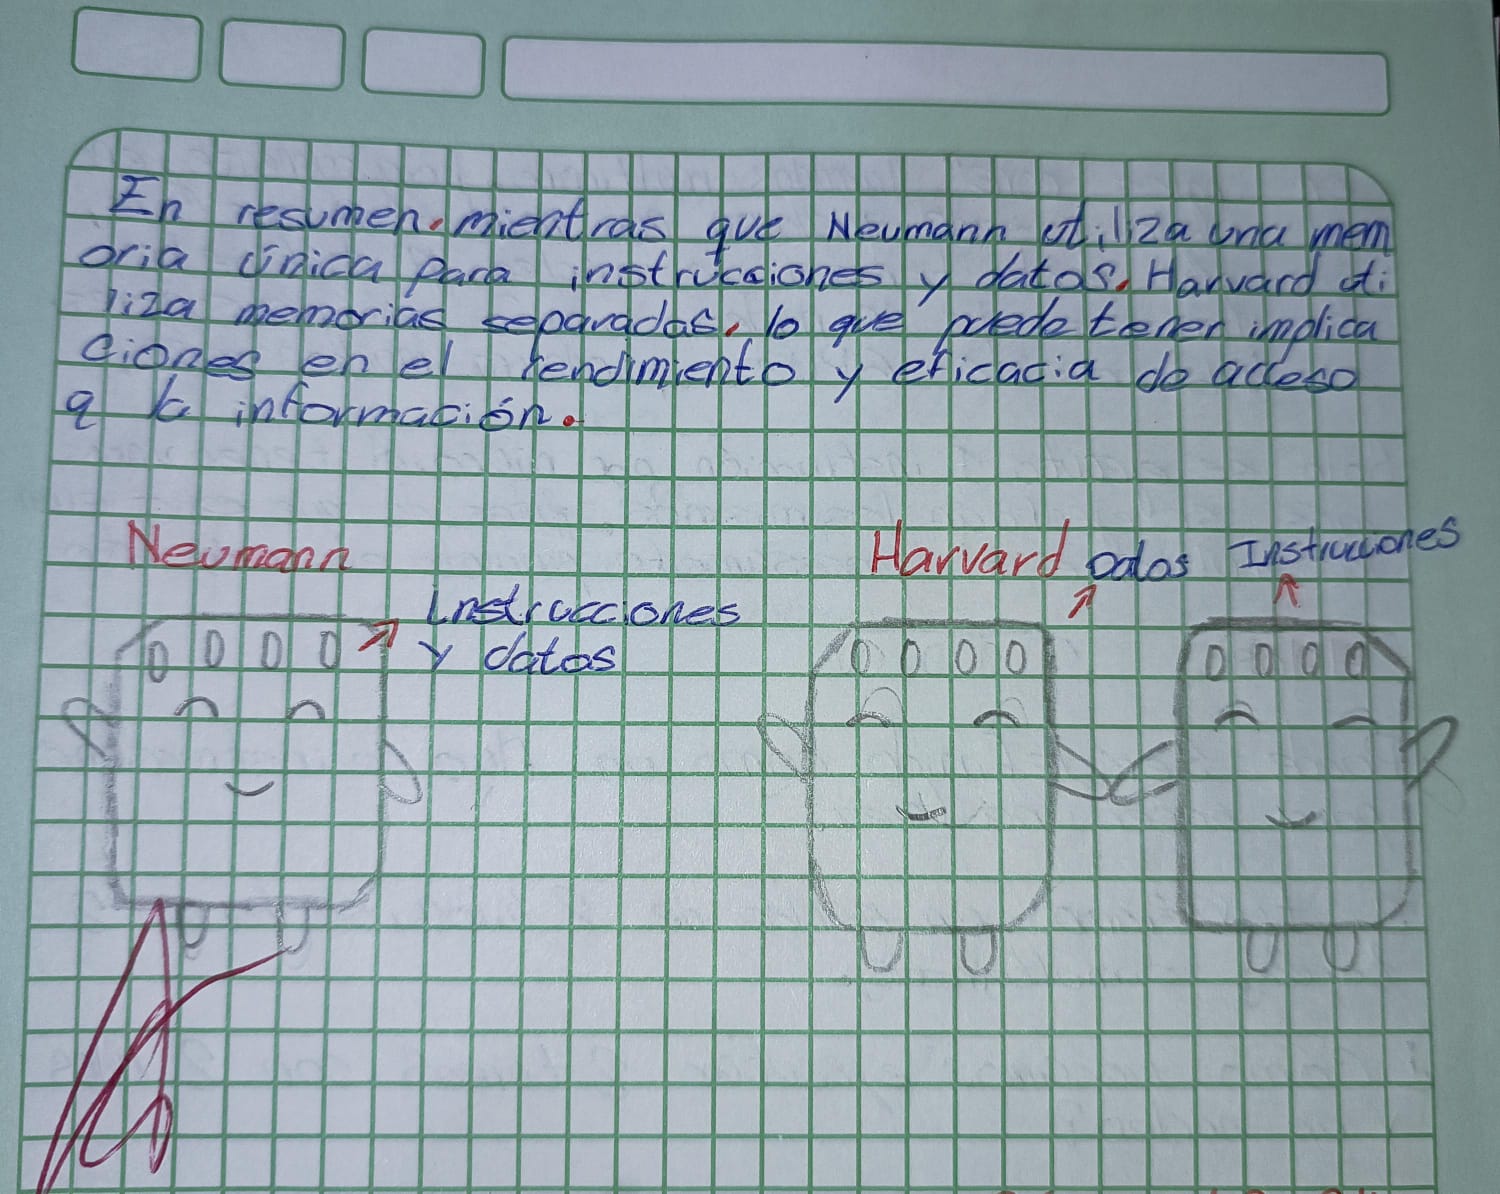 En resumen, mientras que Neumann utiliza una mem
oria única para instrucciones y datos, Harvard uti
liza memorias separadas, lo que puede tener implica
ciones en el rendimiento y eficacia de acceso
a la información.
Neumann
Instrucciones
y datos
Harvard Datos Instrucciones
0 0 0 0
0 0 0 0
0 0 0 0